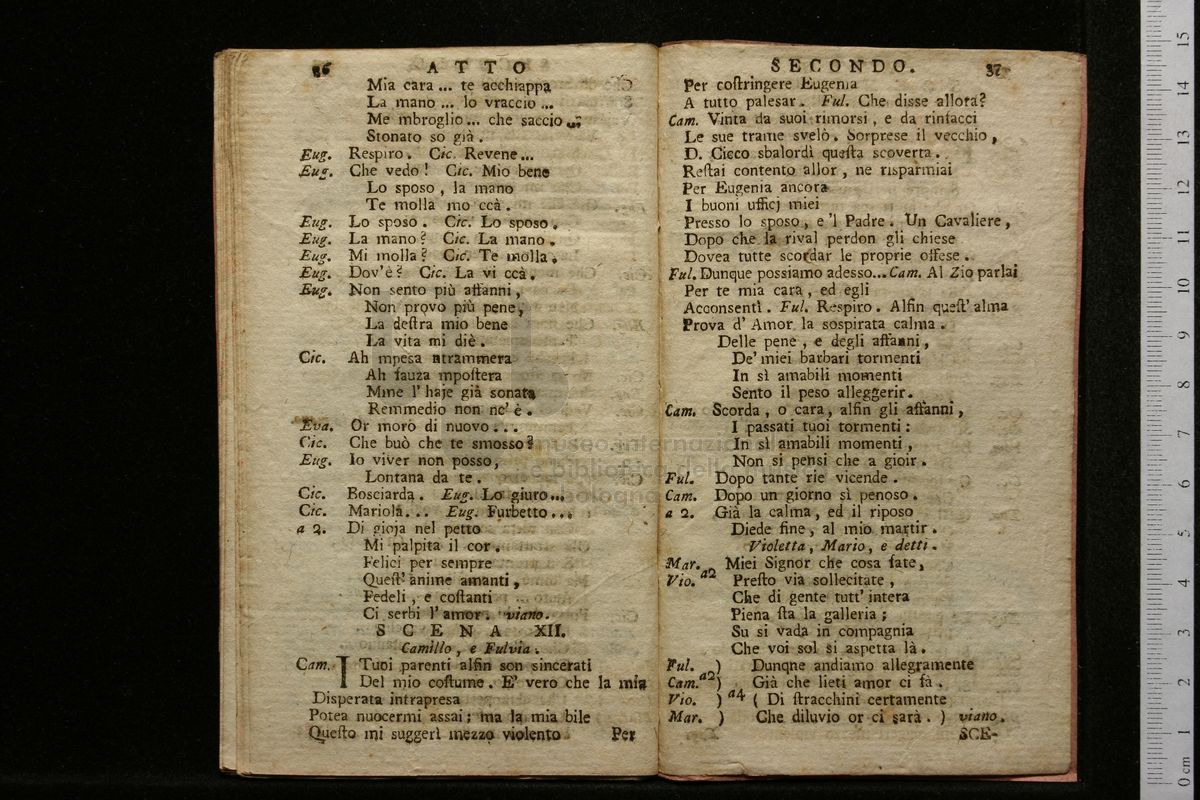 36 ATTO
Mia cara ... te acchiappa
La mano ... lo vraccio ...
Me mbroglio ... che saccio ...
Stonato so già.
Eug. Respiro. Cic. Revene...
Eug. Che vedo! Cic. Mio bene
Lo sposo, la mano
Te molla mo ccà.
Eug. Lo sposo. Cic. Lo sposo.
Eug. La mano? Cic. La mano.
Eug. Mi molla? Cic. Te molla.
Eug. Dov'è? Cic. La vi ccà.
Eug. Non sento più affanni,
Non provo più pene,
La destra mio bene
La vita mi diè.
Cic. Ah mpesa ntrammera
Ah fauza mpostera
Mme l'haje già sonata
Remmedio non nc'è.
Eva. Or moro di nuovo...
Cic. Che buò che te smosso?
Eug. Io viver non posso,
Lontana da te.
Cic. Bosciarda. Eug. Lo giuro...
Cic. Mariola... Eug. Furbetto...
a 2. Di gioja nel petto
Mi palpita il cor.
Felici per sempre
Quest' anime amanti,
Fedeli, e costanti
Ci serbi l'amor. viano.
SCENA XII.
Camillo, e Fulvia.
Cam. I Tuoi parenti alfin son sincerati
Del mio costume. E' vero che la mia
Disperata intrapresa
Potea nuocermi assai; ma la mia bile
Questo mi suggerì mezzo violento
Per
SECONDO. 37
Per costringere Eugenia
A tutto palesar. Ful. Che disse allora?
Cam. Vinta da suoi rimorsi, e da rinfacci
Le sue trame svelò. Sorprese il vecchio,
D. Cicco sbalordì questa scoverta.
Restai contento allor, ne risparmiai
Per Eugenia ancora
I buoni ufficj miei
Presso lo sposo, e 'l Padre. Un Cavaliere,
Dopo che la rival perdon gli chiese
Dovea tutte scordar le proprie offese.
Ful. Dunque possiamo adesso... Cam. Al Zio parlai
Per te mia cara, ed egli
Acconsentì. Ful. Respiro. Alfin quest' alma
Prova d' Amor la sospirata calma.
Delle pene, e degli affanni,
De' miei barbari tormenti
In sì amabili momenti
Sento il peso alleggerir.
Cam. Scorda, o cara, alfin gli affanni,
I passati tuoi tormenti:
In sì amabili momenti,
Non si pensi che a gioir.
Ful. Dopo tante rie vicende.
Cam. Dopo un giorno sì penoso.
a 2. Già la calma, ed il riposo
Diede fine, al mio martir.
Violetta, Mario, e detti.
Mar. Miei Signor che cosa fate,
Vio. a2 Presto via sollecitate,
Che di gente tutt' intera
Piena sta la galleria;
Su si vada in compagnia
Che voi sol si aspetta là.
Ful. ) Dunqne andiamo allegramente
Cam. a2 ) Già che lieti amor ci fà.
Vio. ) a4 ( Di stracchini certamente
Mar. ) Che diluvio or ci sarà. ) viano.
SCE-